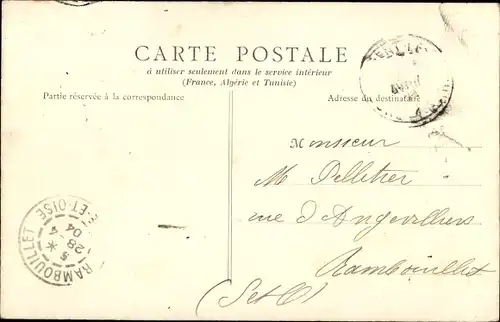 CARTE POSTALE
à utiliser seulement dans le service intérieur
(France, Algérie et Tunisie)
Partie réservée à la correspondance
Adresse du destinataire
Monsieur
M Pelletier
rue d'Angevilliers
Rambouillet
(S et O)
RAMBOUILLET
ET-OISE
5 *
28 -4
04